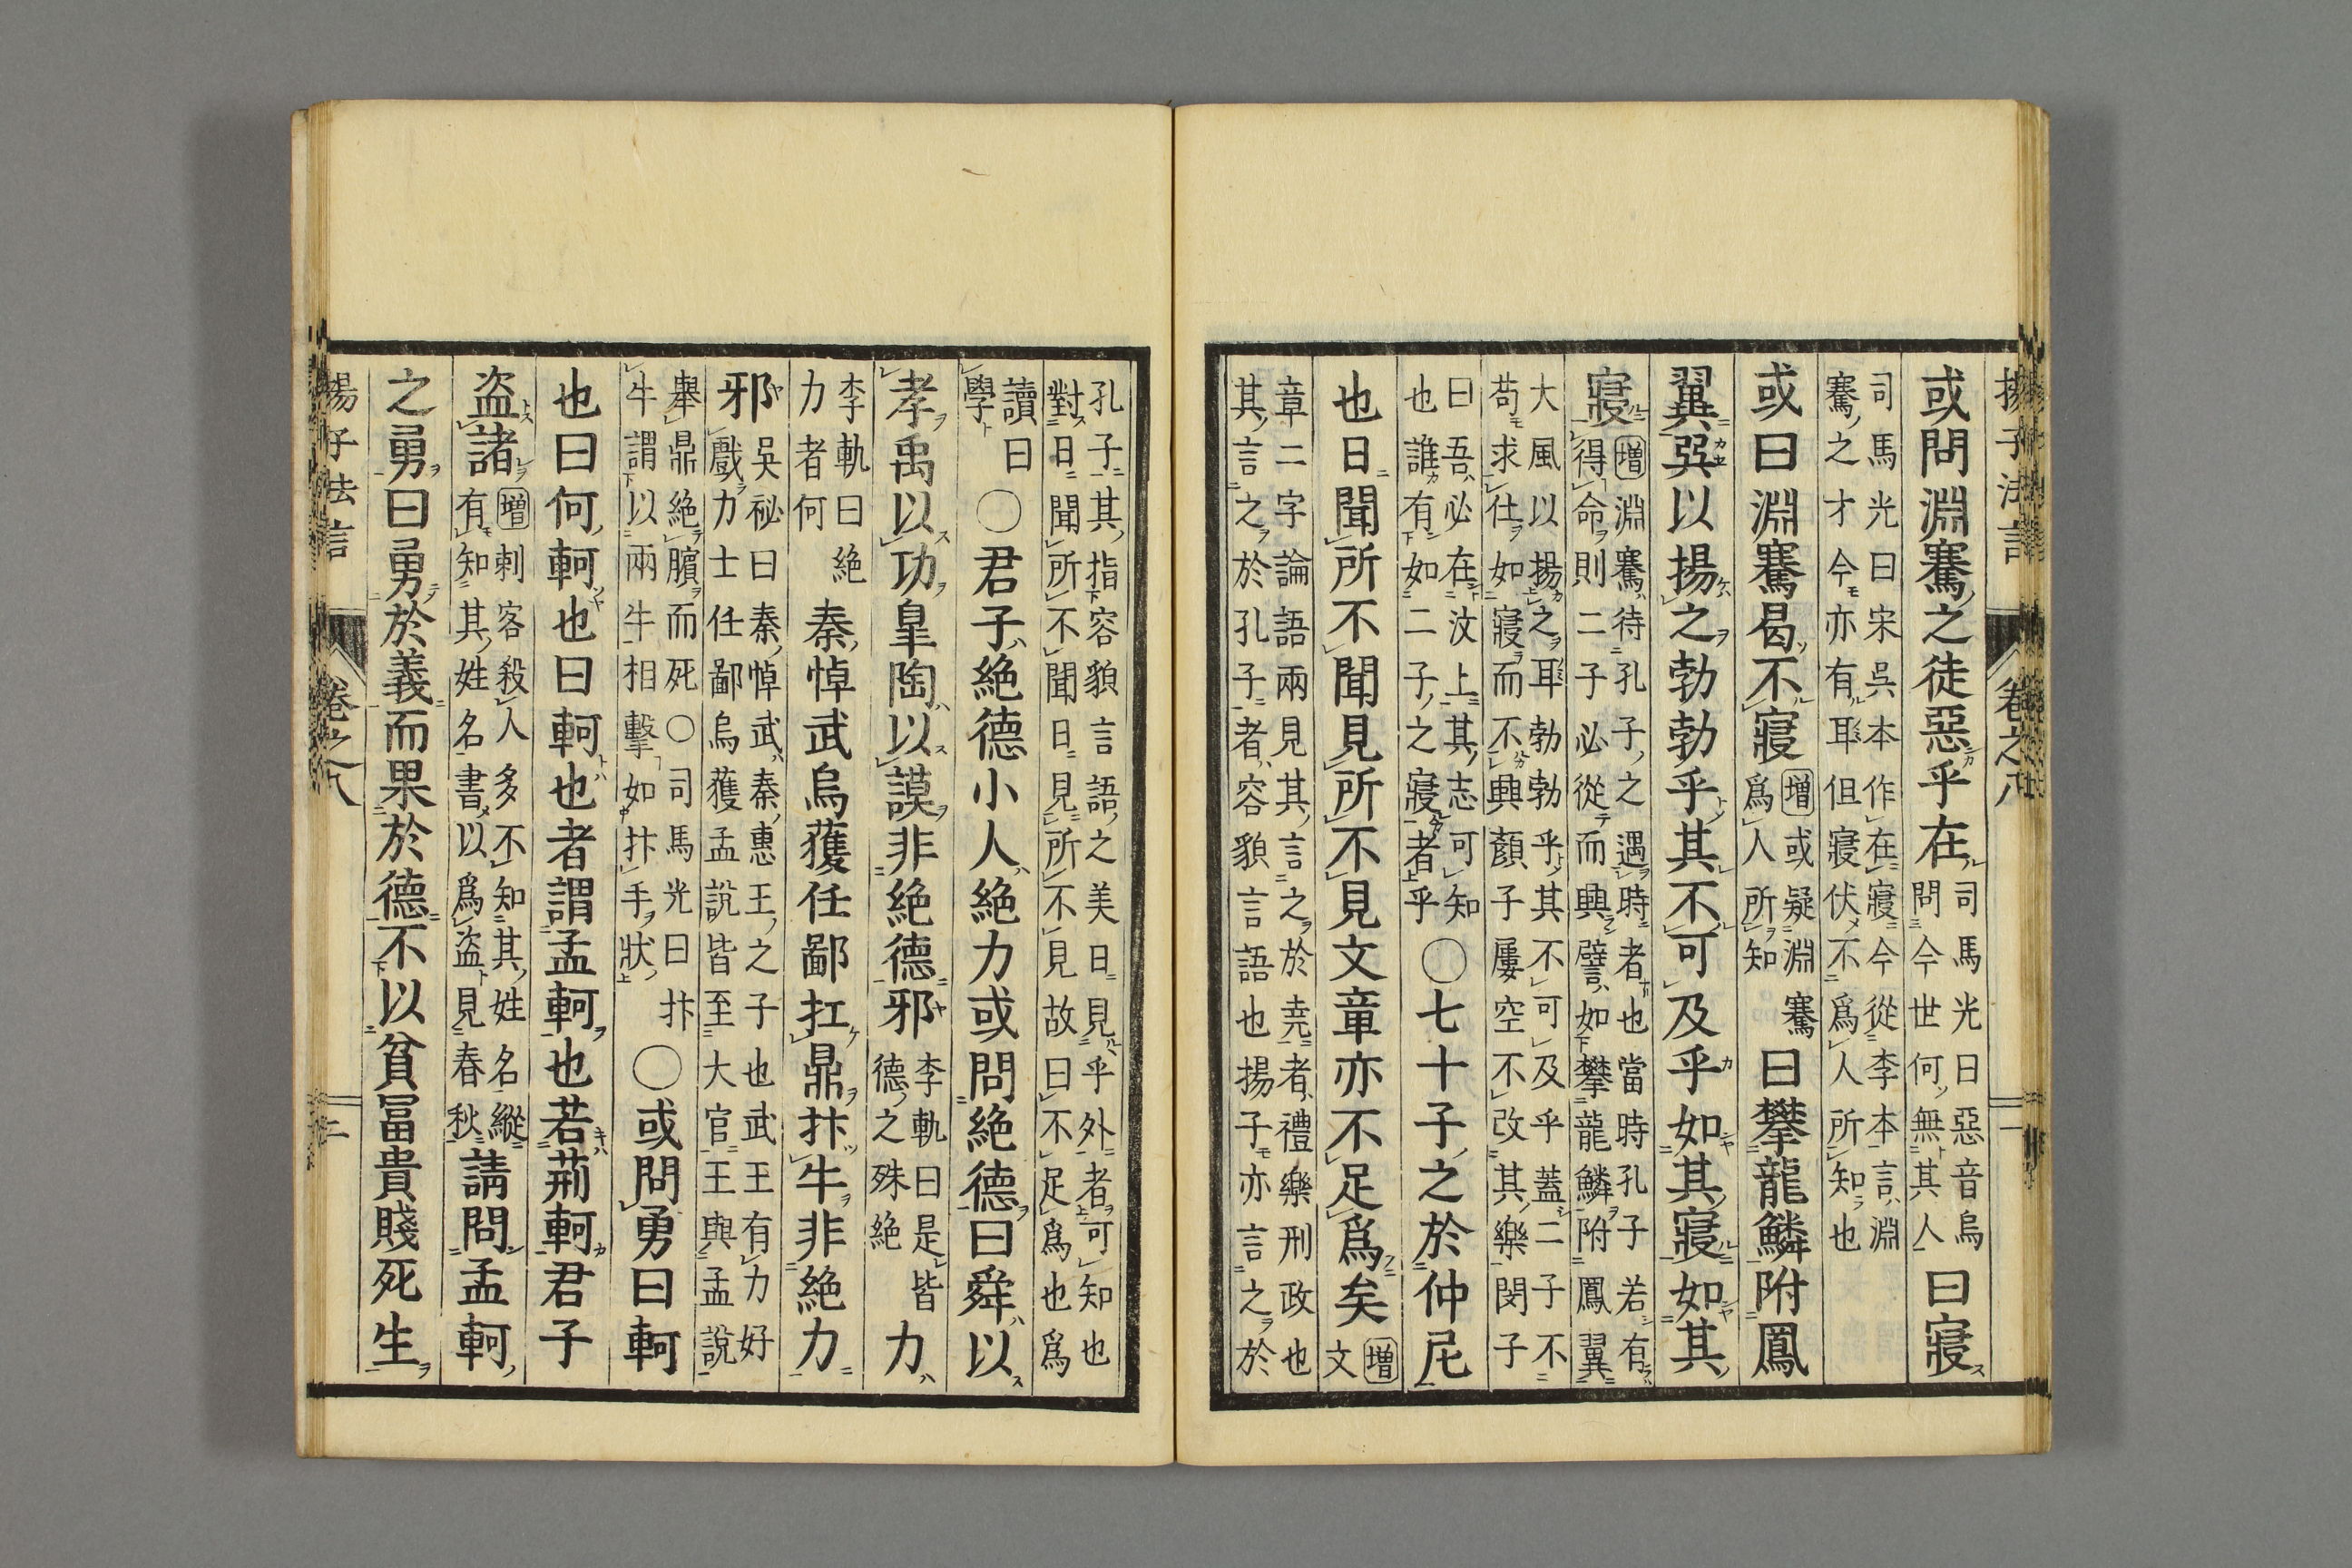 揚子法言 卷之八 一
或問淵騫之徒惡乎在
司馬光曰惡音烏
問今世何無其人
曰寢
司馬光曰宋吳本作在寢今從李本言淵
騫之才今亦有耳但寢伏不爲人所知也
或曰淵騫曷不寢
增或疑淵騫
爲人所知
曰攀龍鱗附鳳
翼巽以揚之勃勃乎其不可及乎如其寢如其
寢
增淵騫待孔子之遇時者也當時孔子若有
得命則二子必從而興譬如攀龍鱗附鳳翼
大風以揚之耳勃勃乎其不可及乎蓋二子不
苟求仕如寢而不興顏子屢空不改其樂閔子
曰吾必在汶上其志可知
也誰有如二子之寢者乎
○七十子之於仲尼
也日聞所不聞見所不見文章亦不足爲矣
增
文
章二字論語兩見其言之於堯者禮樂刑政也
其言之於孔子者容貌言語也揚子亦言之於
孔子其指容貌言語之美日見乎外者可知也
對日聞所不聞日見所不見故曰不足爲也爲
讀曰
學
○君子絕德小人絕力或問絕德曰舜以
孝禹以功皐陶以謨非絕德邪
李軌曰是皆
德之殊絕
力
李軌曰絕
力者何
秦悼武烏獲任鄙扛鼎抃牛非絕力
邪
吳祕曰秦悼武秦惠王之子也武王有力好
戲力士任鄙烏獲孟說皆至大官王與孟說
舉鼎絕臏而死○司馬光曰抃
牛謂以兩牛相擊如抃手狀
○或問勇曰軻
也曰何軻也曰軻也者謂孟軻也若荊軻君子
盜諸
增刺客殺人多不知其姓名縱
有知其姓名書以爲盜見春秋
請問孟軻
之勇曰勇於義而果於德不以貧富貴賤死生
揚子法言 卷之八 二